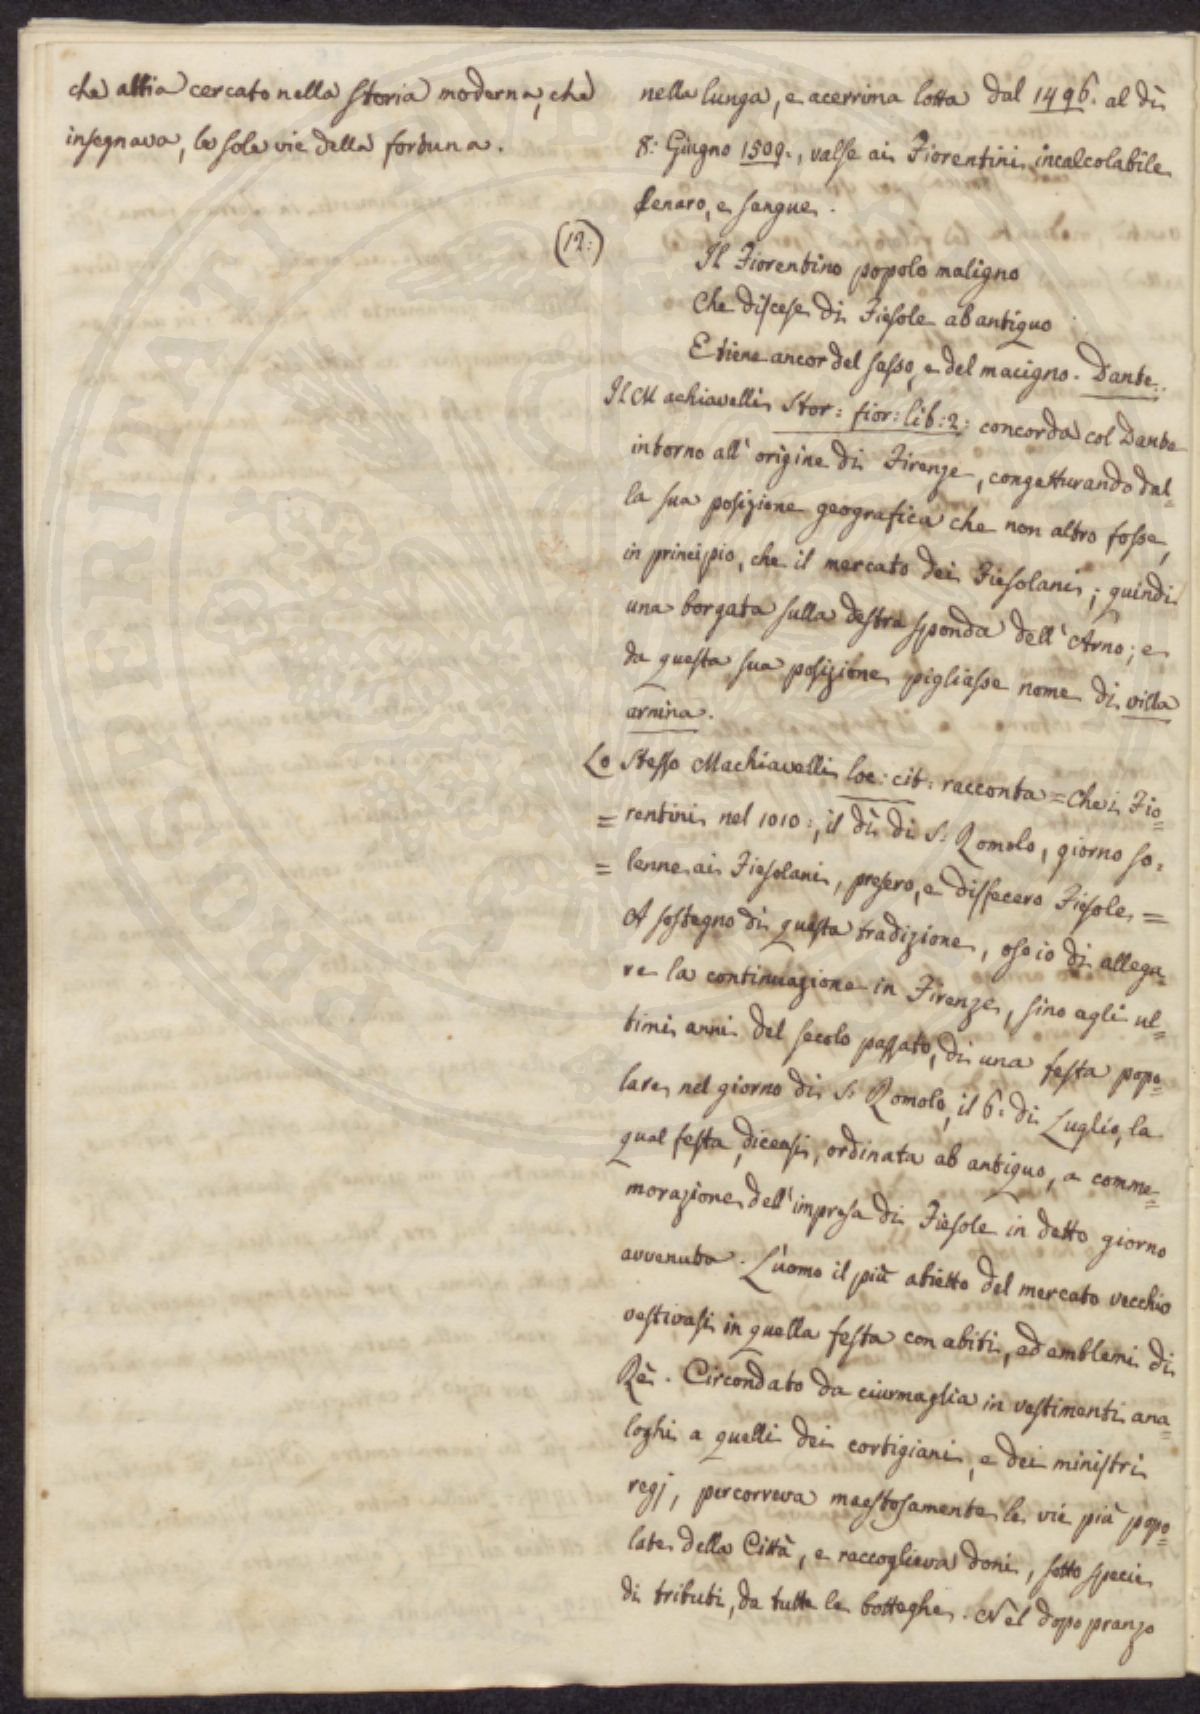 che abbia cercato nella storia moderna, che
insegnava, le sole vie della fortuna.
nella lunga, e acerrima lotta dal 1496. al dì
8: Giugno 1509., valse ai Fiorentini incalcolabile
denaro, e sangue.
(12:)
Il Fiorentino popolo maligno
Che discese di Fiesole ab antiquo
E tiene ancor del sasso, e del macigno. Dante.
Il Machiavelli Stor: fior: lib: 2: concorda col Dante
intorno all' origine di Firenze, congetturando dal=
la sua posizione geografica che non altro fosse,
in principio, che il mercato dei Fiesolani; quindi
una borgata sulla destra sponda dell' Arno; e
da questa sua posizione pigliasse nome di villa
arnina.
Lo stesso Machiavelli loc: cit: racconta = Che i Fio=
= rentini nel 1010:, il dì di S: Romolo, giorno so=
= lenne ai Fiesolani, presero, e disfecero Fiesole =
A sostegno di questa tradizione, oso io di allega=
re la continuazione in Firenze, sino agli ul=
timi anni del secolo passato, di una festa popo=
lare nel giorno di S. Romolo, il 6: di Luglio, la
qual festa, diceasi, ordinata ab antiquo, a comme=
morazione dell' impresa di Fiesole in detto giorno
avvenuta. L'uomo il più abietto del mercato vecchio
vestivasi in quella festa con abiti, ed emblemi di
Rè. Circondato da ciurmaglia in vestimenti ana=
loghi a quelli dei cortigiani, e dei ministri
regj, percorreva maestosamente le vie più popo=
late della Città, e raccoglieva doni, sotto specie
di tributi, da tutte le botteghe. Nel dopo pranzo